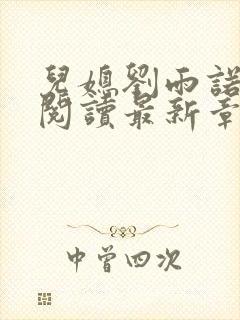 兒媳劉雨諾
閱讀最新章
中曾四次